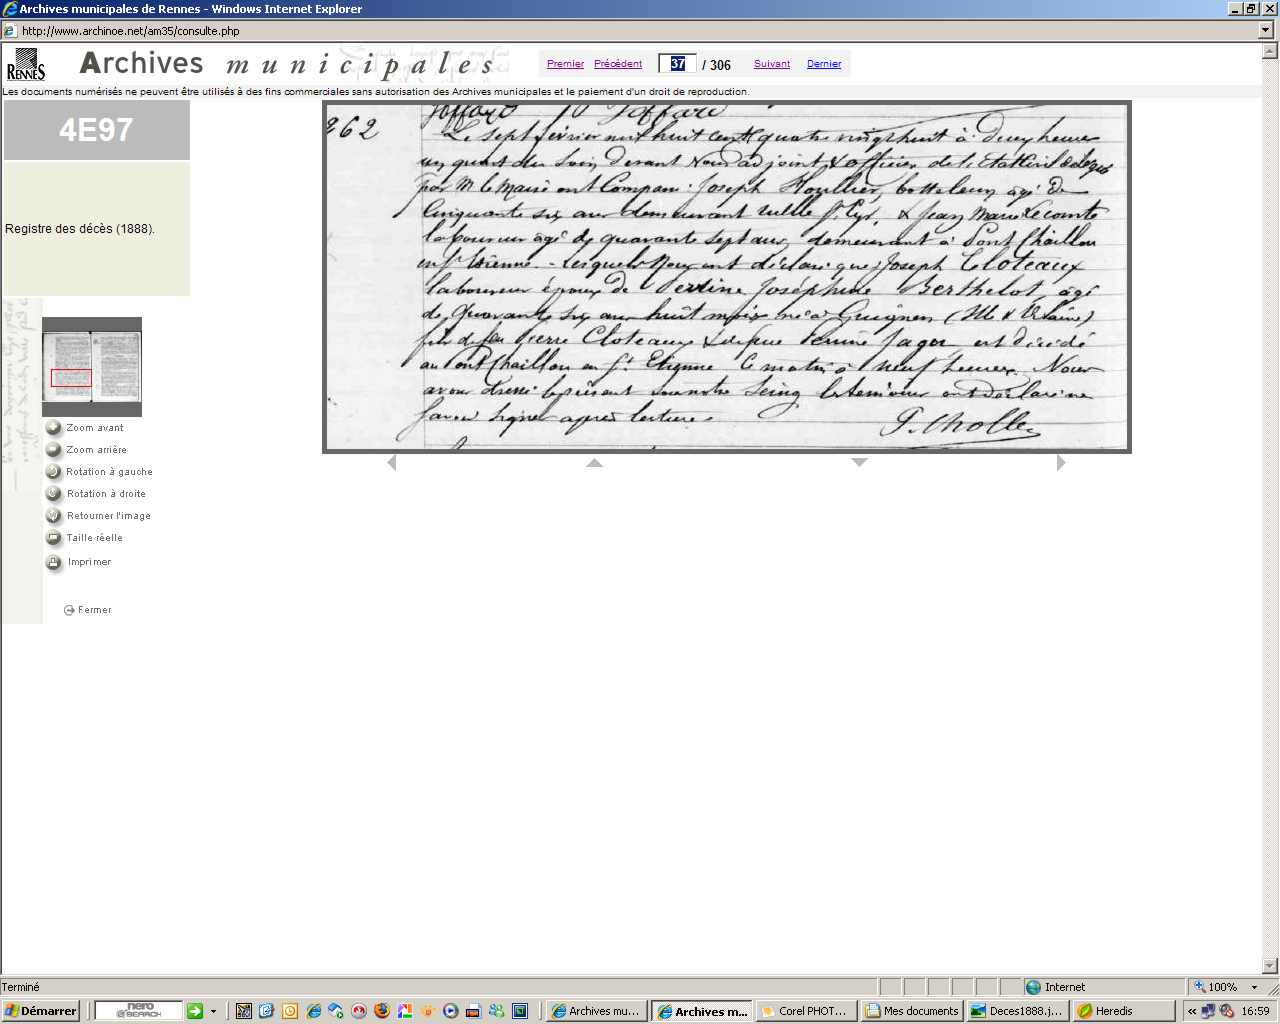 Archives municipales de Rennes - Windows Internet Explorer
http://www.archinoe.net/am35/consulte.php
RENNES
Archives municipales
Premier Précédent 37 / 306 Suivant Dernier
Les documents numérisés ne peuvent être utilisés à des fins commerciales sans autorisation des Archives municipales et le paiement d'un droit de reproduction.
4E97
Registre des décès (1888).
262
Le sept février mil huit cent quatre vingt huit à deux heures
un quart du soir, devant Nous adjoint & officier de l'Etat Civil délégué
par M. le Maire ont Comparu: Joseph Houllier, botteleur, âgé de
Cinquante six ans demeurant ruelle St. Cyr, & Jean Marie Lecomte
laboureur âgé de quarante sept ans, demeurant à Pont Chaillou
en St. Etienne. - Lesquels Nous ont déclaré que Joseph Cloteaux
laboureur époux de Perrine Joséphine Berthelot, âgé
de Quarante six ans huit mois né à Guignen (Ille & Vilaine)
fils de feu Pierre Cloteaux & defunte Perrine Jagou est décédé
au Pont Chaillou en St. Etienne Ce matin à neuf heures. Nous
avons dressé le présent sous notre Seing les témoins ont déclaré ne
savoir signer après lecture.
Zoom avant
Zoom arrière
Rotation à gauche
Rotation à droite
Retourner l'image
Taille réelle
Imprimer
Fermer
Terminé
Internet
100%
Démarrer
nero
SEARCH
Archives mu...
Archives m...
Corel PHOT...
Mes documents
Deces1888.j...
Heredis
16:59